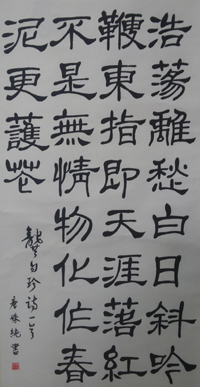 浩蕩離愁白日斜吟
鞭東指即天涯落紅
不是無情物化作春
泥更護花
龔自珍詩一首